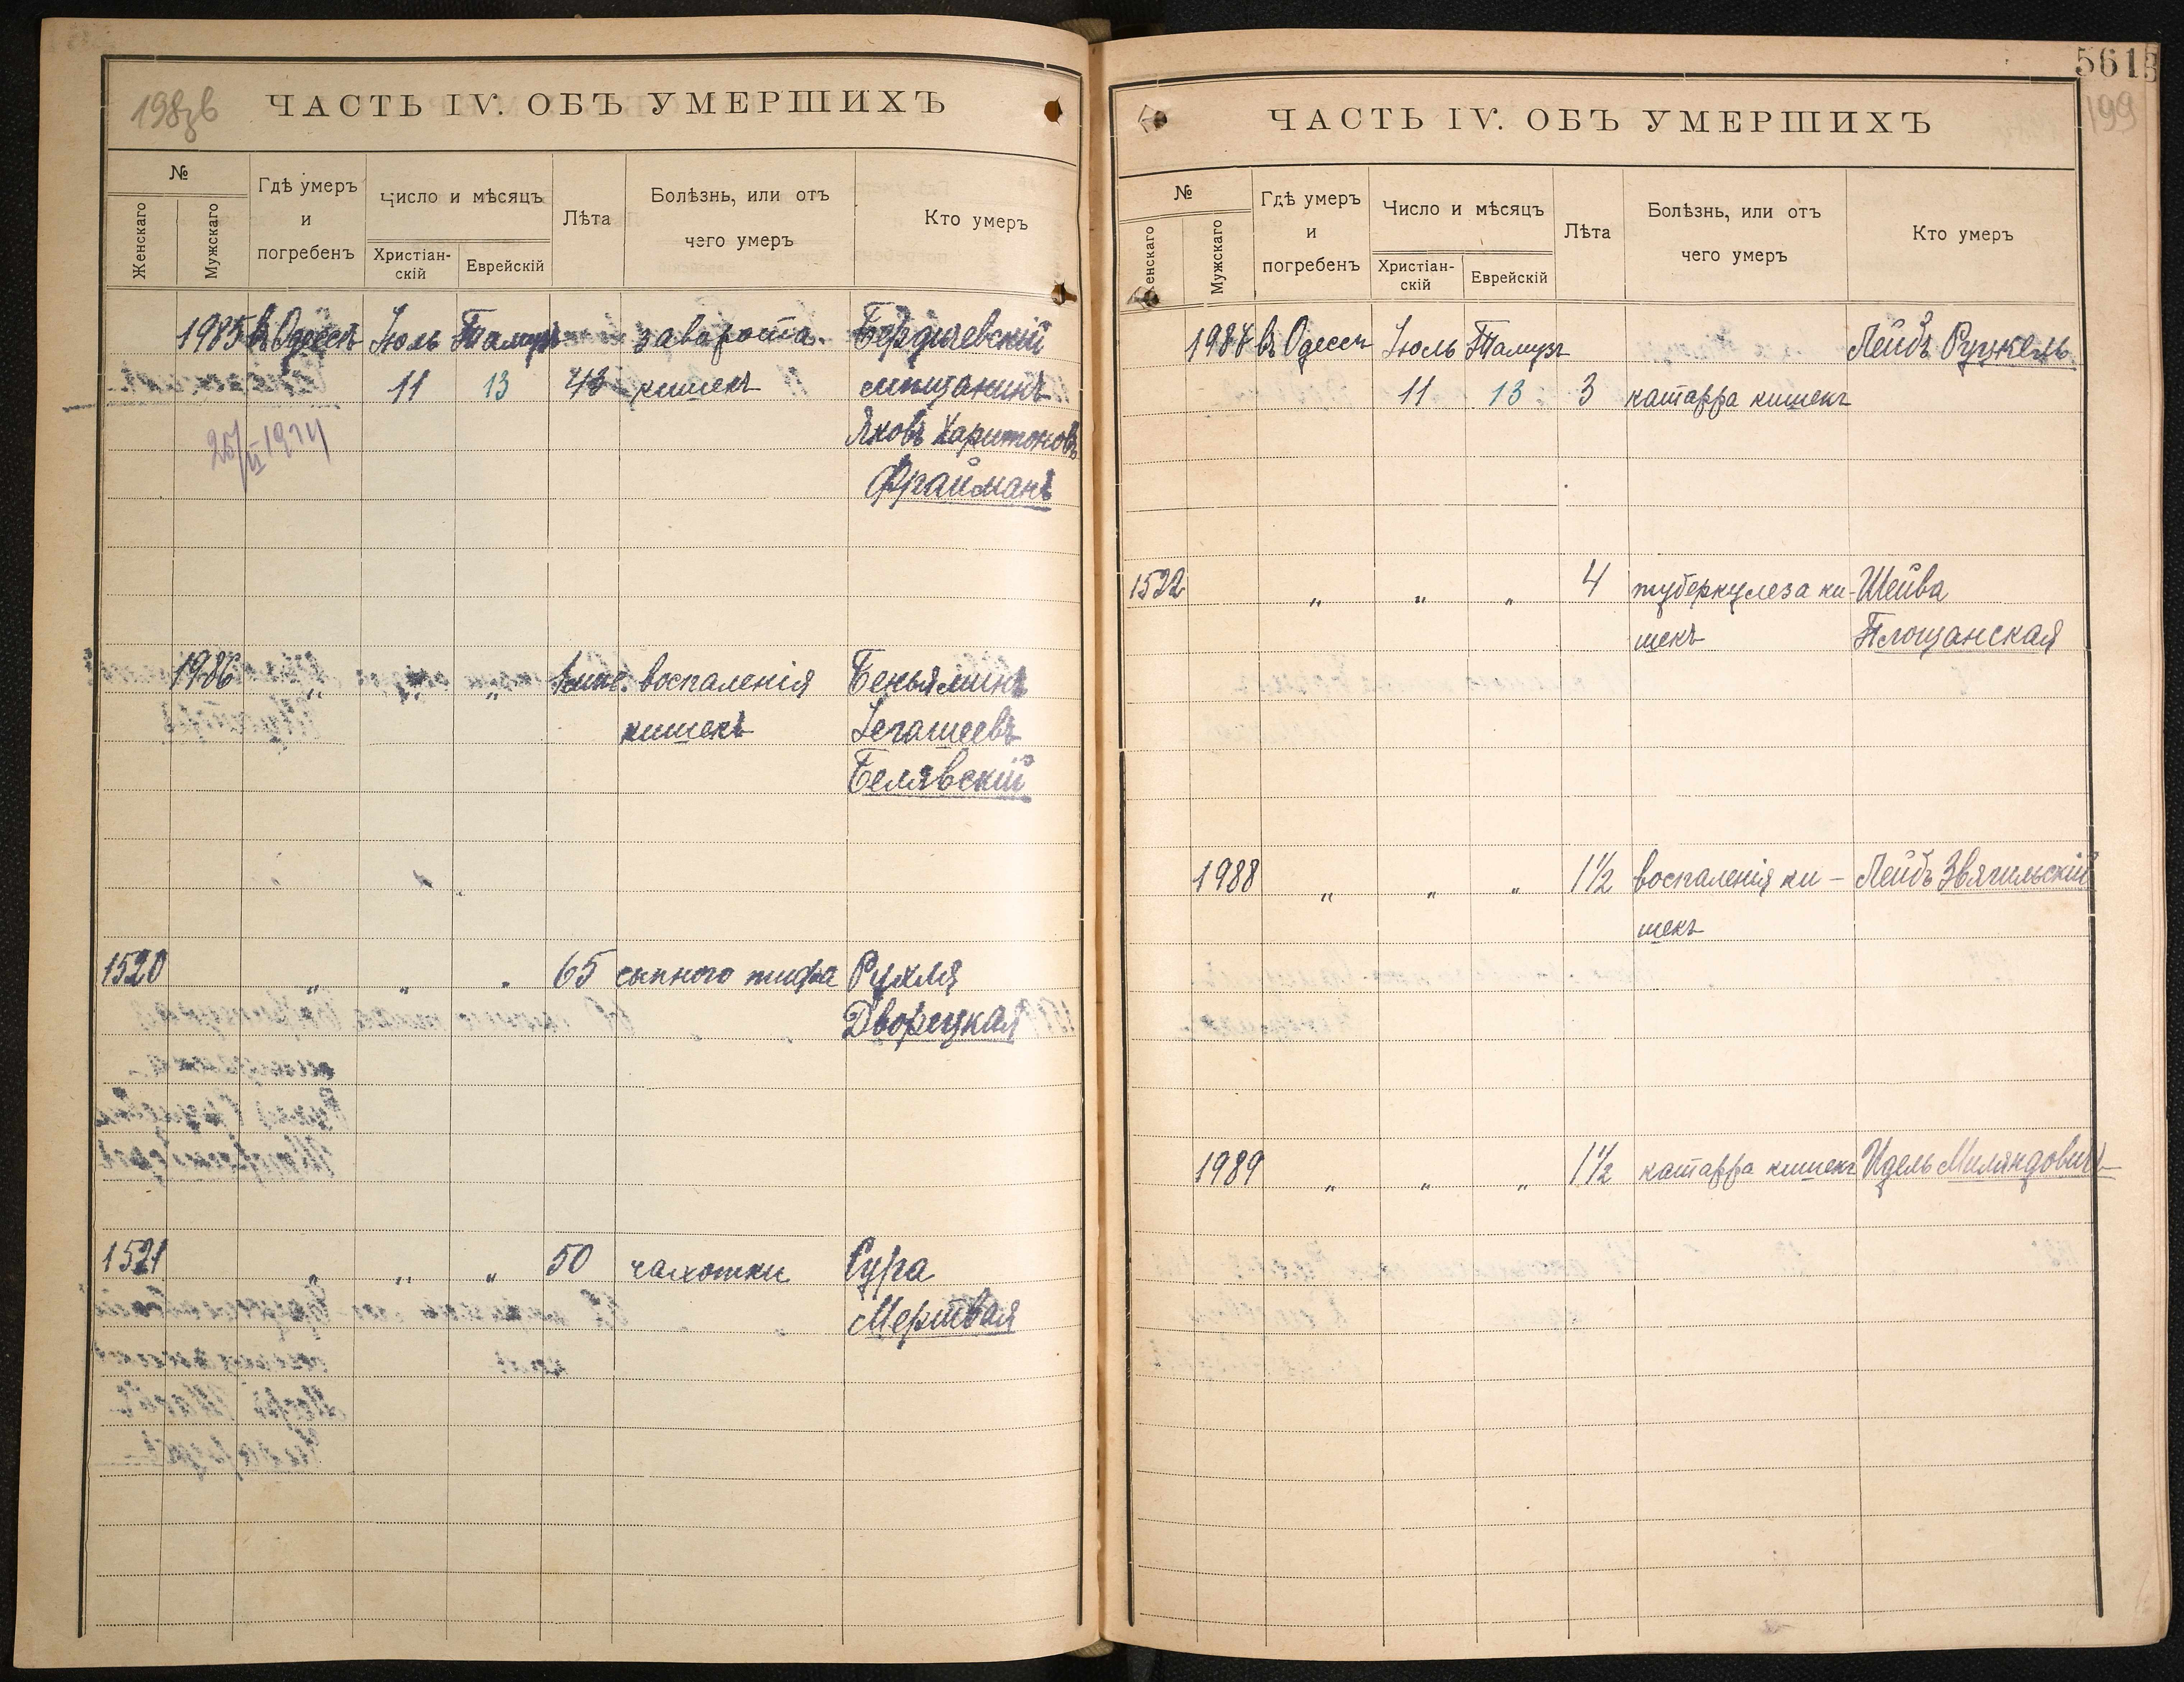 198зв
ЧАСТЬ IV. ОБЪ УМЕРШИХЪ
№
Женскаго
Мужскаго
Гдѣ умеръ
и
погребенъ
Число и мѣсяцъ
Христіан-
скій
Еврейскій
Лѣта
Болѣзнь, или отъ
чего умеръ
Кто умеръ
1985 въ Одессѣ Іюль Тамузъ заворота Бердичевскій
11 13 43 кишекъ мѣщанинъ
Яковъ Харитоновъ
Фрайманъ
1986 „ „ „ воспаленія Беньяминъ
кишекъ
Белявскій
1520 „ „ „ 65 сыпного тифа Рухля
Дворецкая
1521 „ „ „ 50 чахотки Сура
Мертвая
5613
199
ЧАСТЬ IV. ОБЪ УМЕРШИХЪ
№
Женскаго
Мужскаго
Гдѣ умеръ
и
погребенъ
Число и мѣсяцъ
Христіан-
скій
Еврейскій
Лѣта
Болѣзнь, или отъ
чего умеръ
Кто умеръ
1987 въ Одессѣ Іюль Тамузъ Лейбъ Ружкель
11 13 3 катарра кишекъ
1522 „ „ „ 4 туберкулеза ки- Шейва
шекъ Площанская
1988 „ „ „ 1½ воспаленія ки- Лейбъ Звягильскій
шекъ
1989 „ „ „ 1½ катарра кишекъ Идель Миляндовичъ